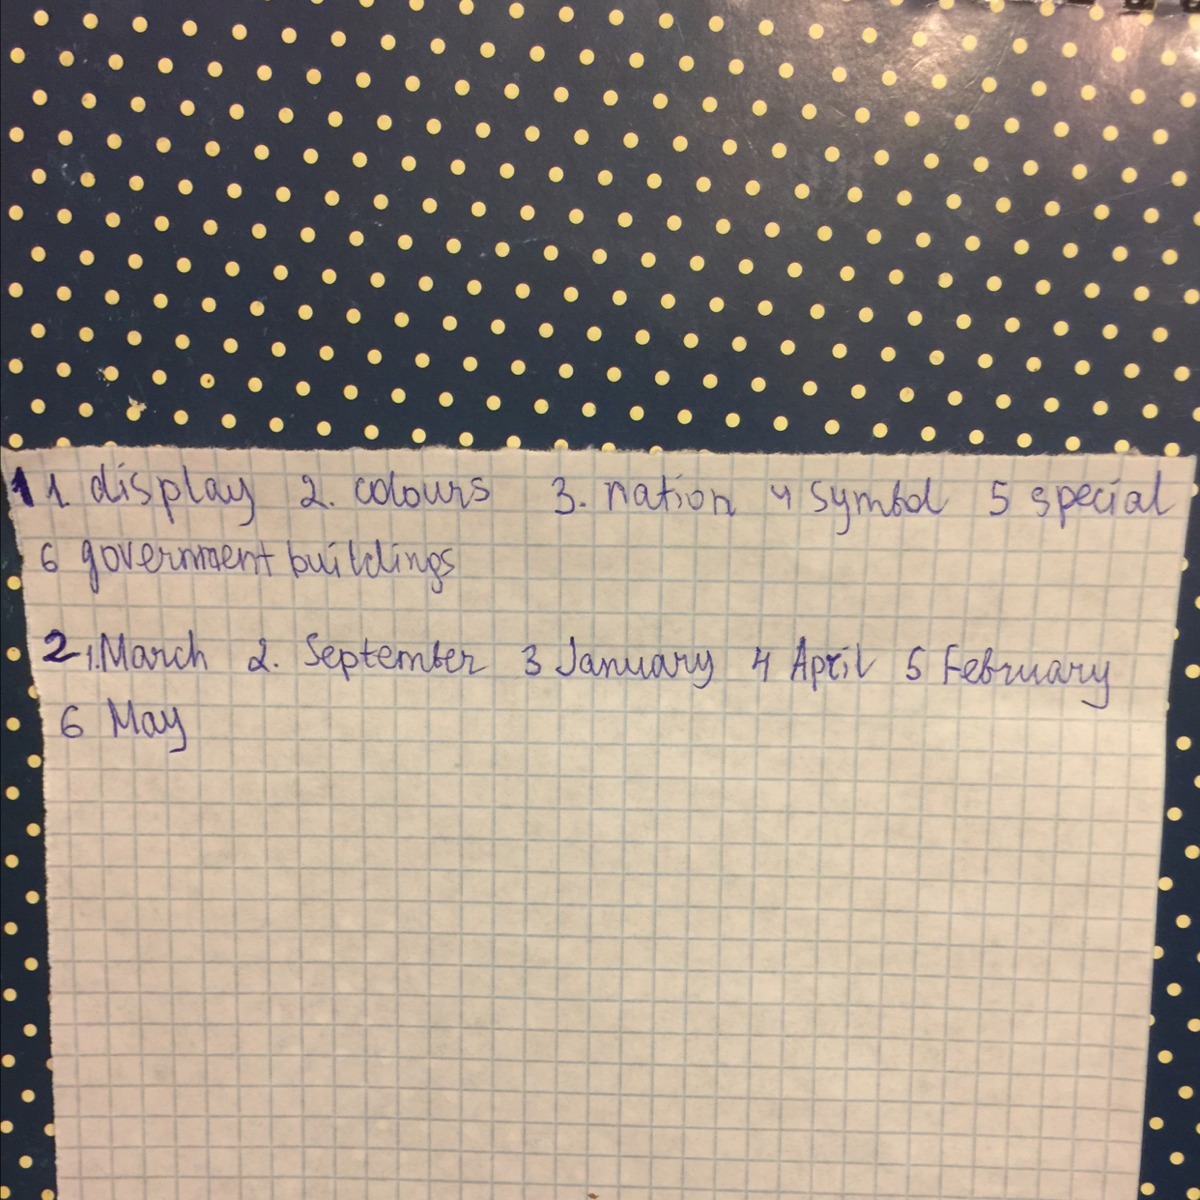 1 1. display 2. colours 3. nation 4 symbol 5 special
6 government buildings
2 1. March 2. September 3 January 4 April 5 February
6 May